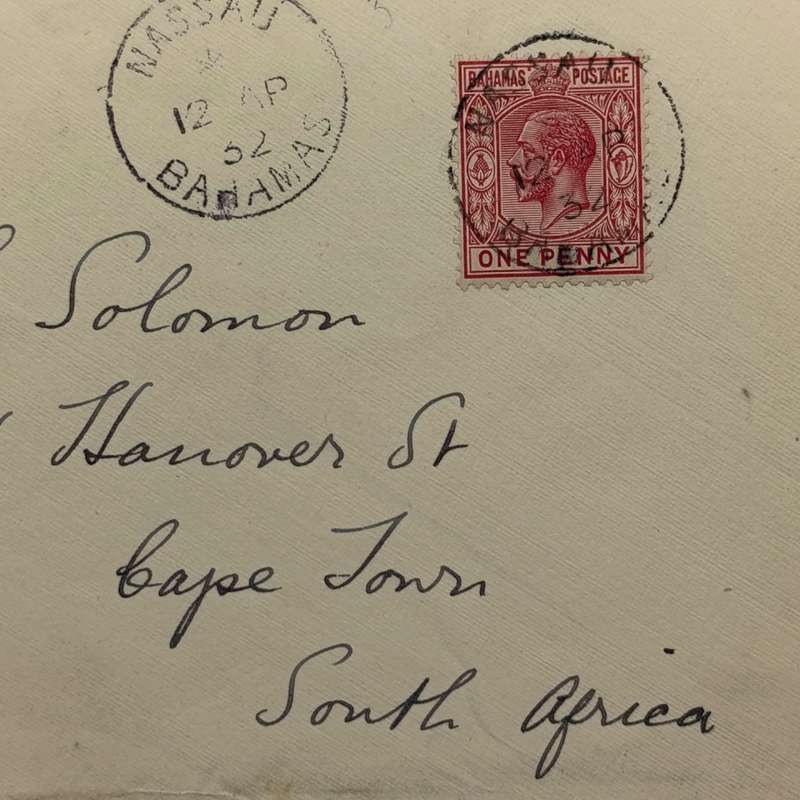 NASSAU
12 AP
32
BAHAMAS
BAHAMAS POSTAGE
NASSAU
12 P
32
BAHAMAS
ONE PENNY
Solomon
Hanover St
Cape Town
South Africa